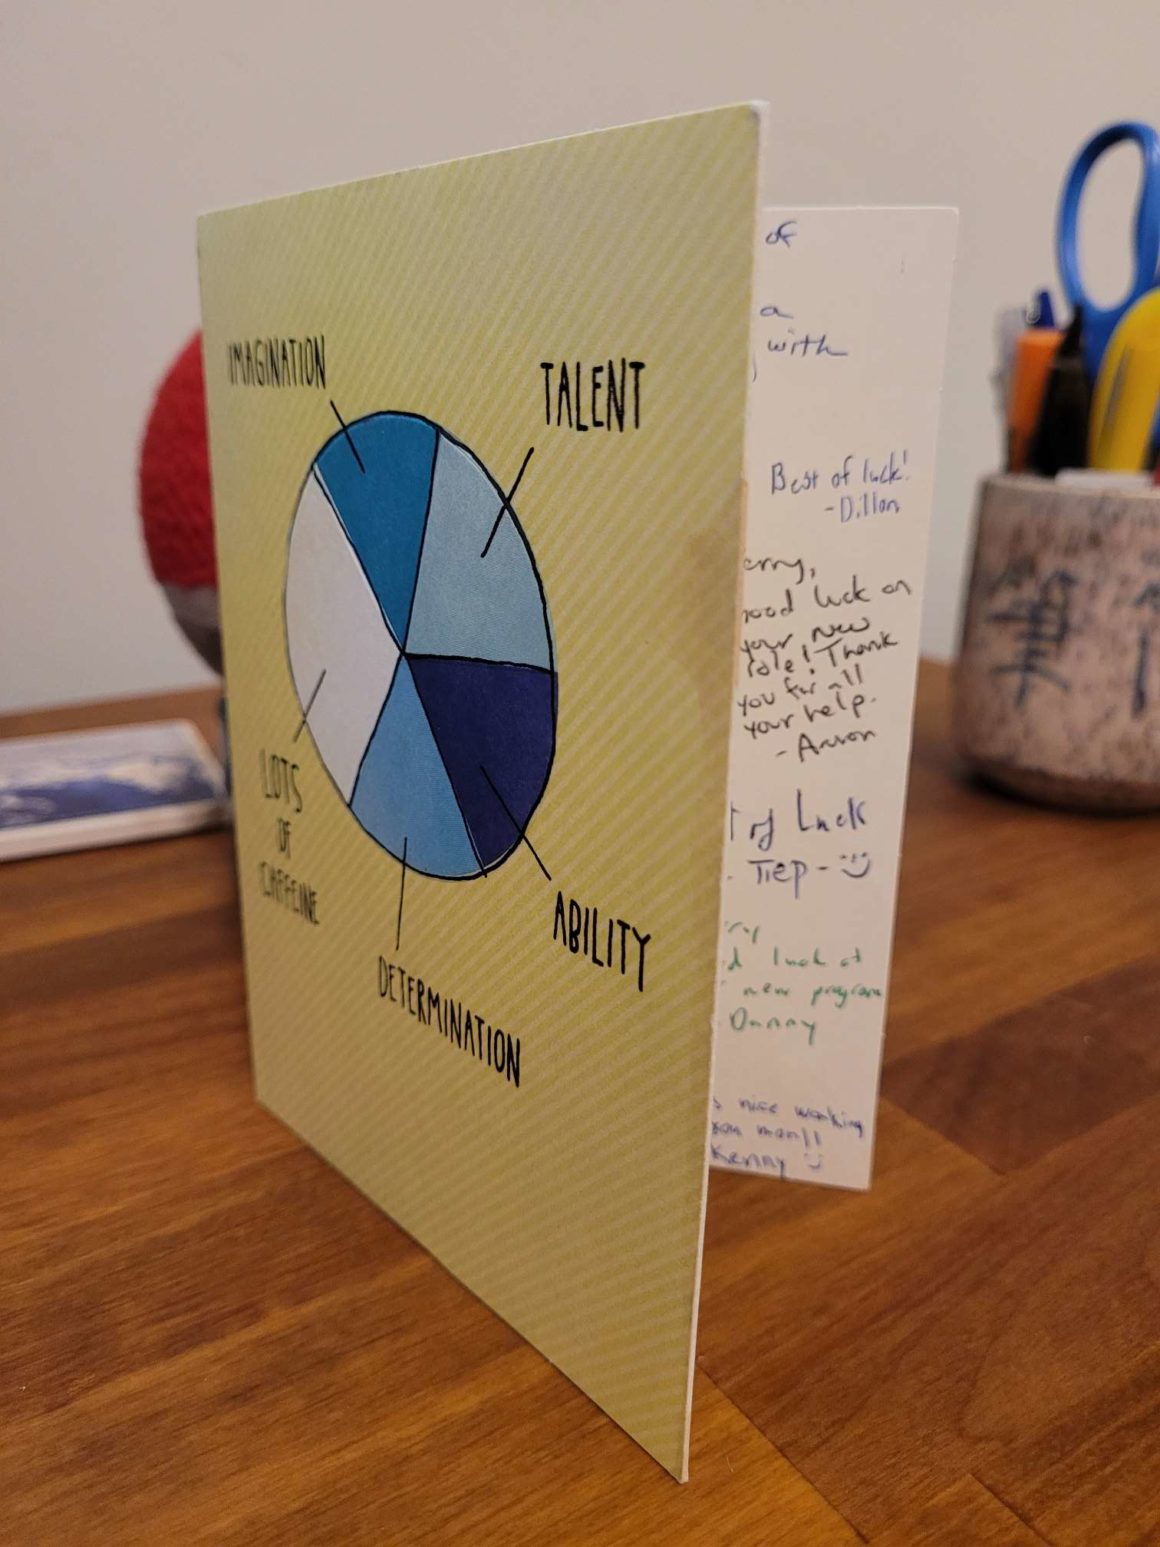 IMAGINATION
TALENT
LOTS
OF
CAFFEINE
DETERMINATION
ABILITY
of
a
with
Best of luck!
-Dillon
erry,
ood luck on
your new
role! Thank
you for all
your help.
- Aaron
t of Luck
- Tiep -
luck at
new program
Danny
nice working
you man!!
Kenny
筆